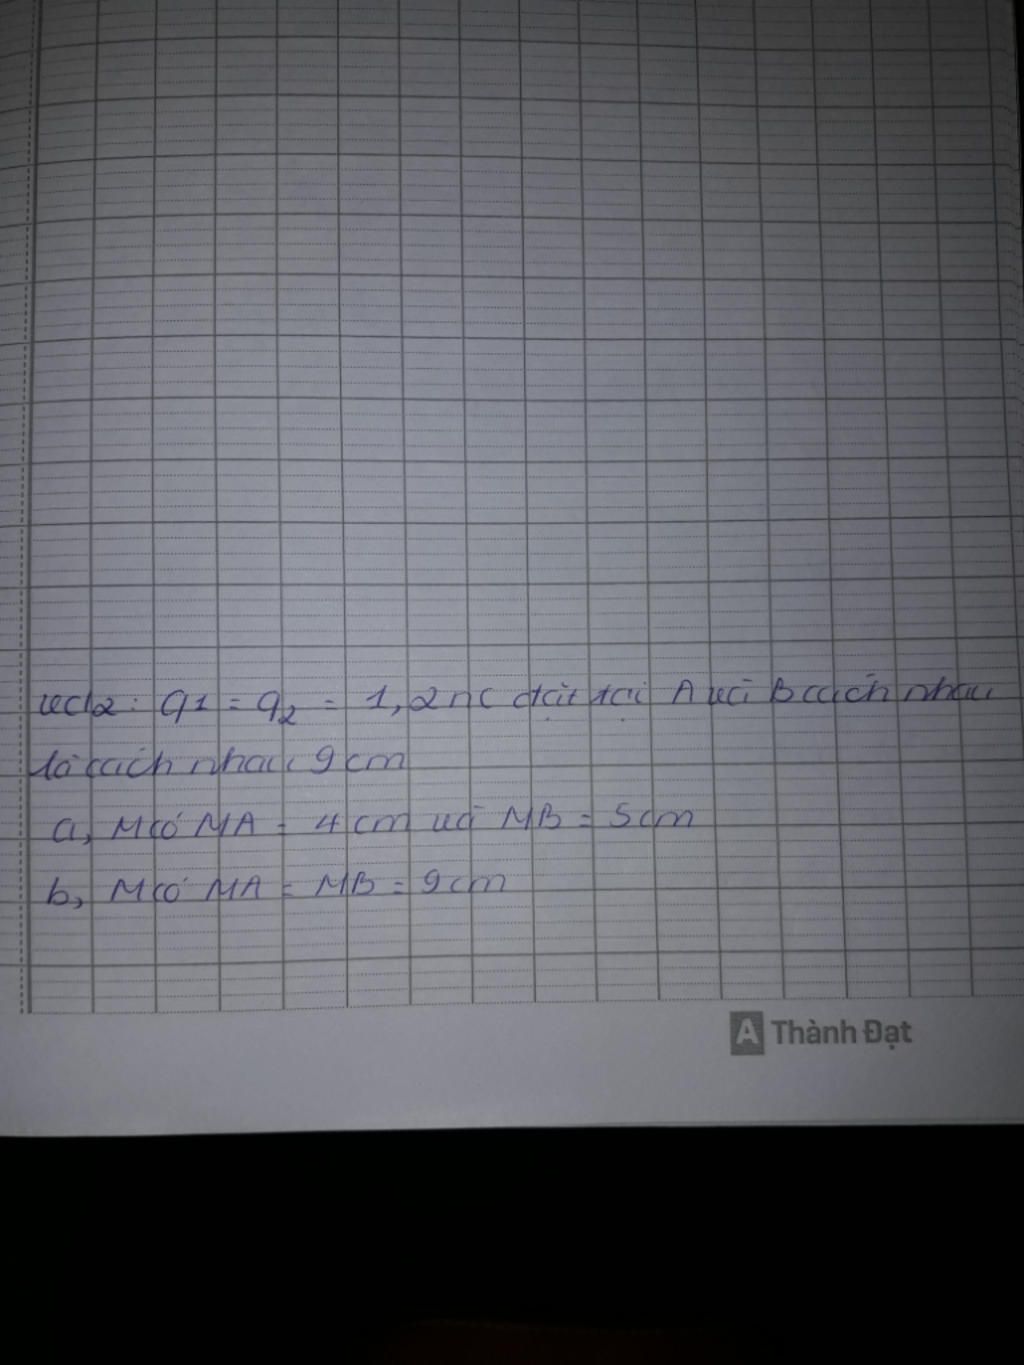 vd2: q1 = q2 = 1,2nC đặt tại A và B cách nhau
là cách nhau 9cm
a, M có MA = 4cm và MB = 5cm
b, M có MA = MB = 9cm
A Thành Đạt